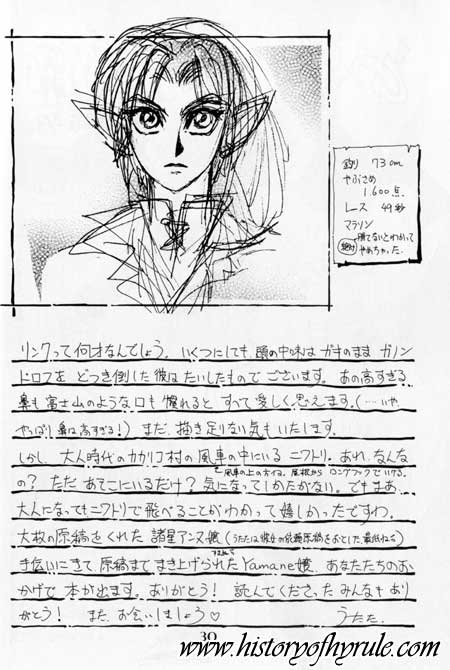 釣り 73cm
やぶさめ
1,600点
レース 49秒
マラソン
絶対勝てないとわかって
やめちゃった。
リンクって何才なんでしょう。いくつにしても頭の中味はガキのまま ガノン
ドロフを どつき倒した彼はたいしたもので ございます。あの高すぎる
鼻も富士山のような口も慣れると すべて愛しく思えます。(……いや
やっぱし鼻は高すぎる!) まだ、描き足りない気もいたします。
しかし、大人時代のカカリコ村の風車の中にいる ニワトリ。あれ、なんな
風車の上の方ィね。屋根から ロングフックでいける。
の? ただ あそこにいるだけ? 気になってしかたがない。でもまあ、
大人になってもニワトリで飛べることがわかって嬉しかったですわ。
大枚の原稿をくれた 諸星アンヌ嬢 (うたたは彼女の依頼原稿をおとした最低ねこ)
手伝いにきて 原稿まで まき上げられたYamane嬢、あなたたちのお
かげで 本が出ます。ありがとう! 読んでくださった みんなもあり
がとう! また、お会いしましょう♡ うたた.
30
www.historyofhyrule.com